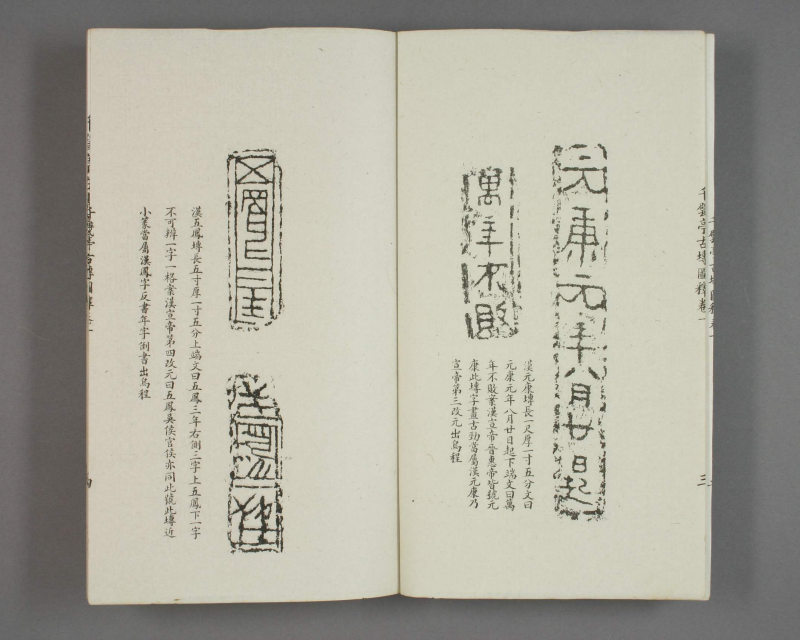 千甓亭古塼圖釋卷一
三
元康元年八月廿日起
萬年不敗
漢元康塼長一尺厚一寸五分文曰
元康元年八月廿日起下端文曰萬
年不敗案漢宣帝晉惠帝皆號元
康此塼字畫古勁當屬漢元康乃
宣帝第三改元出烏程
五鳳三年
漢五鳳塼長五寸厚一寸五分上端文曰五鳳三年右側三字上五鳳下一字
不可辨一字一格案漢宣帝第四改元曰五鳳吳侯官侯亦同此號此塼近
小篆當屬漢鳳字反書年字倒書出烏程
四